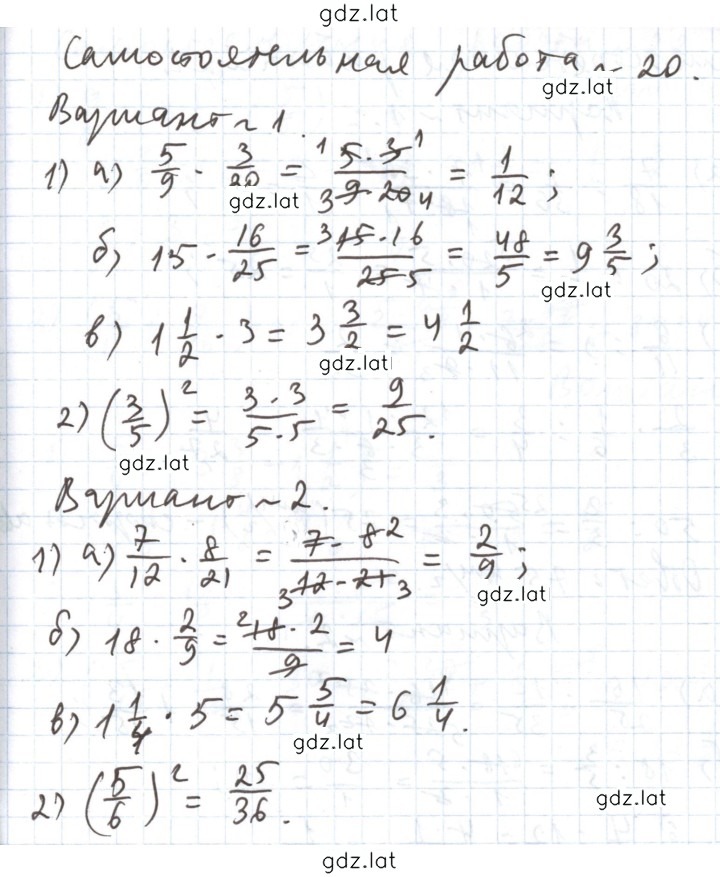 gdz.lat
Самостоятельная работа № 20.
gdz.lat
Вариант № 1.
1) а) 5/9 · 3/20 = 5·3/9·20 = 1/12 ;
gdz.lat
б) 15 · 16/25 = 15·16/25 = 48/5 = 9 3/5 ;
gdz.lat
в) 1 1/2 · 3 = 3 3/2 = 4 1/2
gdz.lat
2) (3/5)² = 3·3/5·5 = 9/25.
gdz.lat
Вариант № 2.
1) а) 7/12 · 8/21 = 7·8/12·21 = 2/9 ;
gdz.lat
б) 18 · 2/9 = 18·2/9 = 4
в) 1 1/4 · 5 = 5 5/4 = 6 1/4.
gdz.lat
2) (5/6)² = 25/36.
gdz.lat
gdz.lat